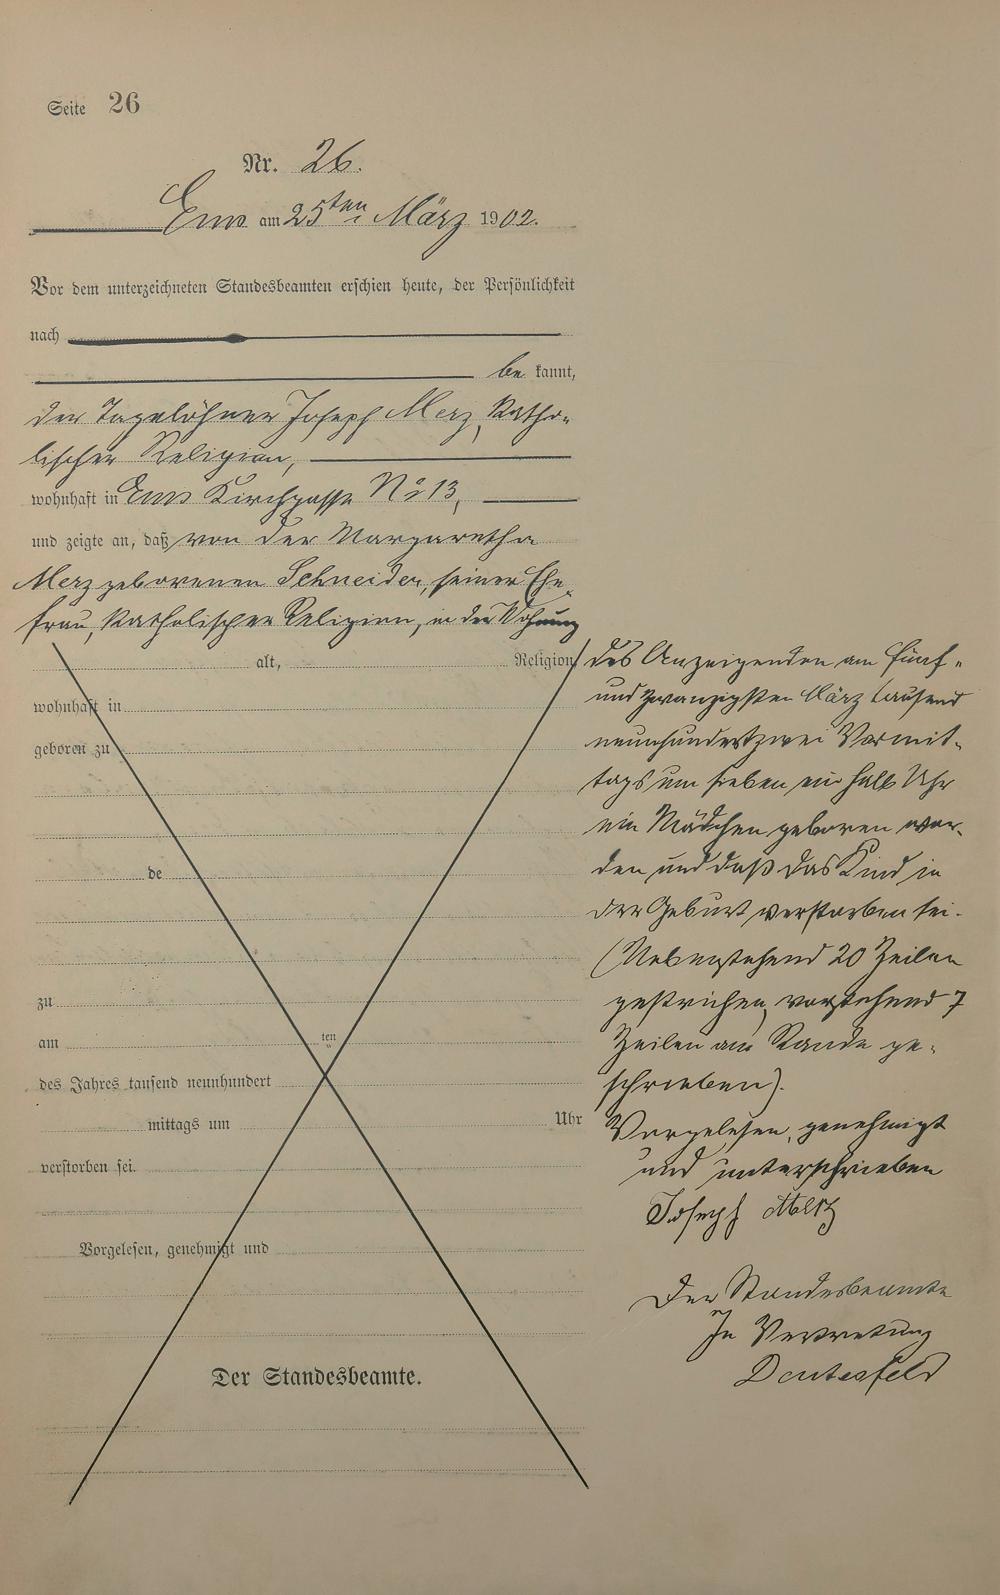 Seite 26
Nr. 26.
Ems am 25ten März 1902.
Vor dem unterzeichneten Standesbeamten erschien heute, der Persönlichkeit
nach
be kannt,
der Tagelöhner Joseph Merz, katho-
lischer Religion,
wohnhaft in Ems Kirchgasse No 13,
und zeigte an, daß von der Margaretha
Merz geborenen Schneider, seiner Ehe-
frau, katholischer Religion, in der Wohnung
alt, Religion
wohnhaft in
geboren zu
de
zu
am ten
des Jahres tausend neunhundert
mittags um Uhr
verstorben sei.
Vorgelesen, genehmigt und
Der Standesbeamte.
des Anzeigenden am fünf-
und zwanzigsten März tausend
neunhundertzwei Vormit-
tags um sieben ein halb Uhr
ein Mädchen geboren wor-
den und daß das Kind in
der Geburt verstorben sei.
(Nebenstehend 20 Zeilen
gestrichen, vorstehend 7
Zeilen am Rande ge-
schrieben).
Vorgelesen, genehmigt
und unterschrieben
Joseph Mertz
Der Standesbeamte
In Vertretung